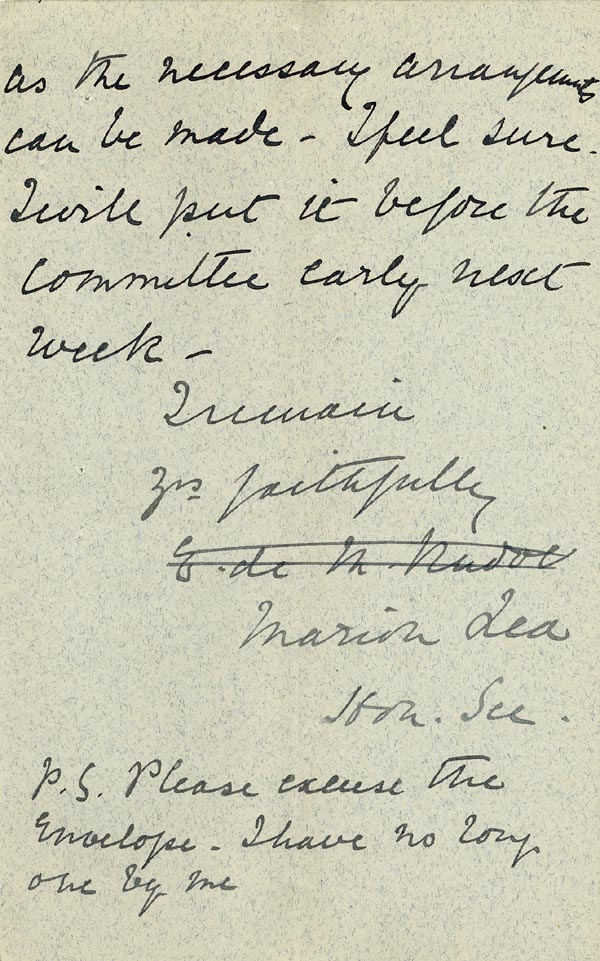 as the necessary arrangements
can be made - I feel sure.
I will put it before the
Committee early next
week -
I remain
Yrs faithfully
E. de M. Rudolf
Marion Lea
Hon. Sec.
P.S. Please excuse the
Envelope - I have no long
one by me